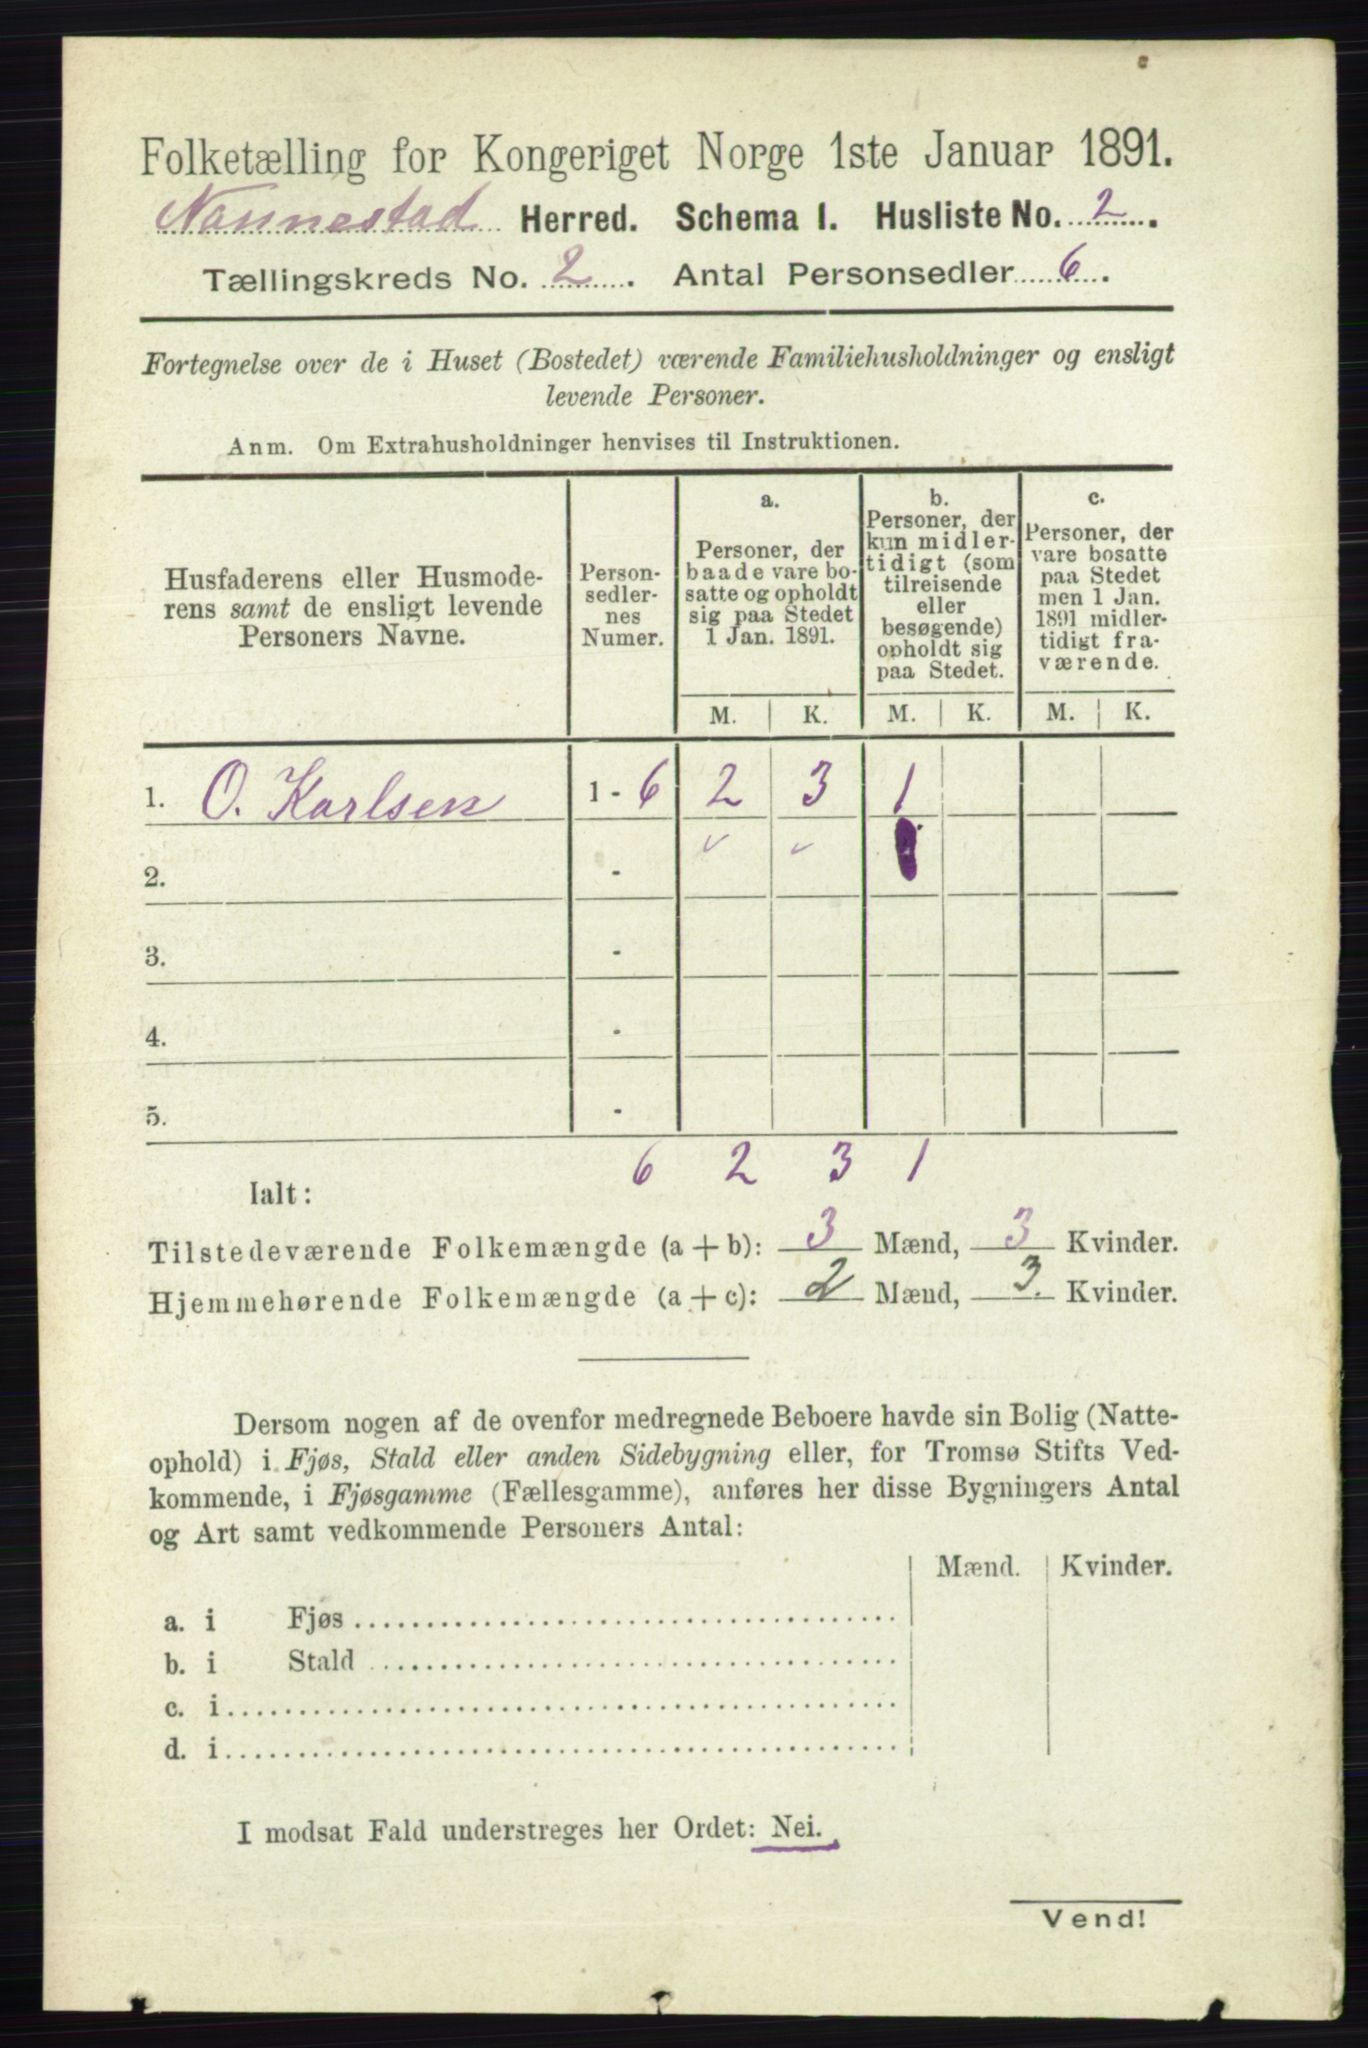 Folketælling for Kongeriget Norge 1ste Januar 1891.
Nannestad Herred. Schema I. Husliste No. 2.
Tællingskreds No. 2. Antal Personsedler 6.
Fortegnelse over de i Huset (Bostedet) værende Familiehusholdninger og ensligt
levende Personer.
Anm. Om Extrahusholdninger henvises til Instruktionen.
Husfaderens eller Husmode-
rens samt de ensligt levende
Personers Navne.
Person-
sedler-
nes
Numer.
a.
Personer, der
baade vare bo-
satte og opholdt
sig paa Stedet
1 Jan. 1891.
b.
Personer, der
kun midler-
tidigt (som
tilreisende
eller
besøgende)
opholdt sig
paa Stedet.
c.
Personer, der
vare bosatte
paa Stedet
men 1 Jan.
1891 midler-
tidigt fra-
værende.
M. K. M. K. M. K.
1. O. Karlsen 1 - 6 2 3 1
2. - ✓ ✓
3. -
4. -
5. -
6 2 3 1
Ialt:
Tilstedeværende Folkemængde (a + b): 3 Mænd, 3 Kvinder.
Hjemmehørende Folkemængde (a + c): 2 Mænd, 3. Kvinder.
Dersom nogen af de ovenfor medregnede Beboere havde sin Bolig (Natte-
ophold) i Fjøs, Stald eller anden Sidebygning eller, for Tromsø Stifts Ved-
kommende, i Fjøsgamme (Fællesgamme), anføres her disse Bygningers Antal
og Art samt vedkommende Personers Antal:
Mænd. Kvinder.
a. i Fjøs
b. i Stald
c. i
d. i
I modsat Fald understreges her Ordet: Nei.
Vend!